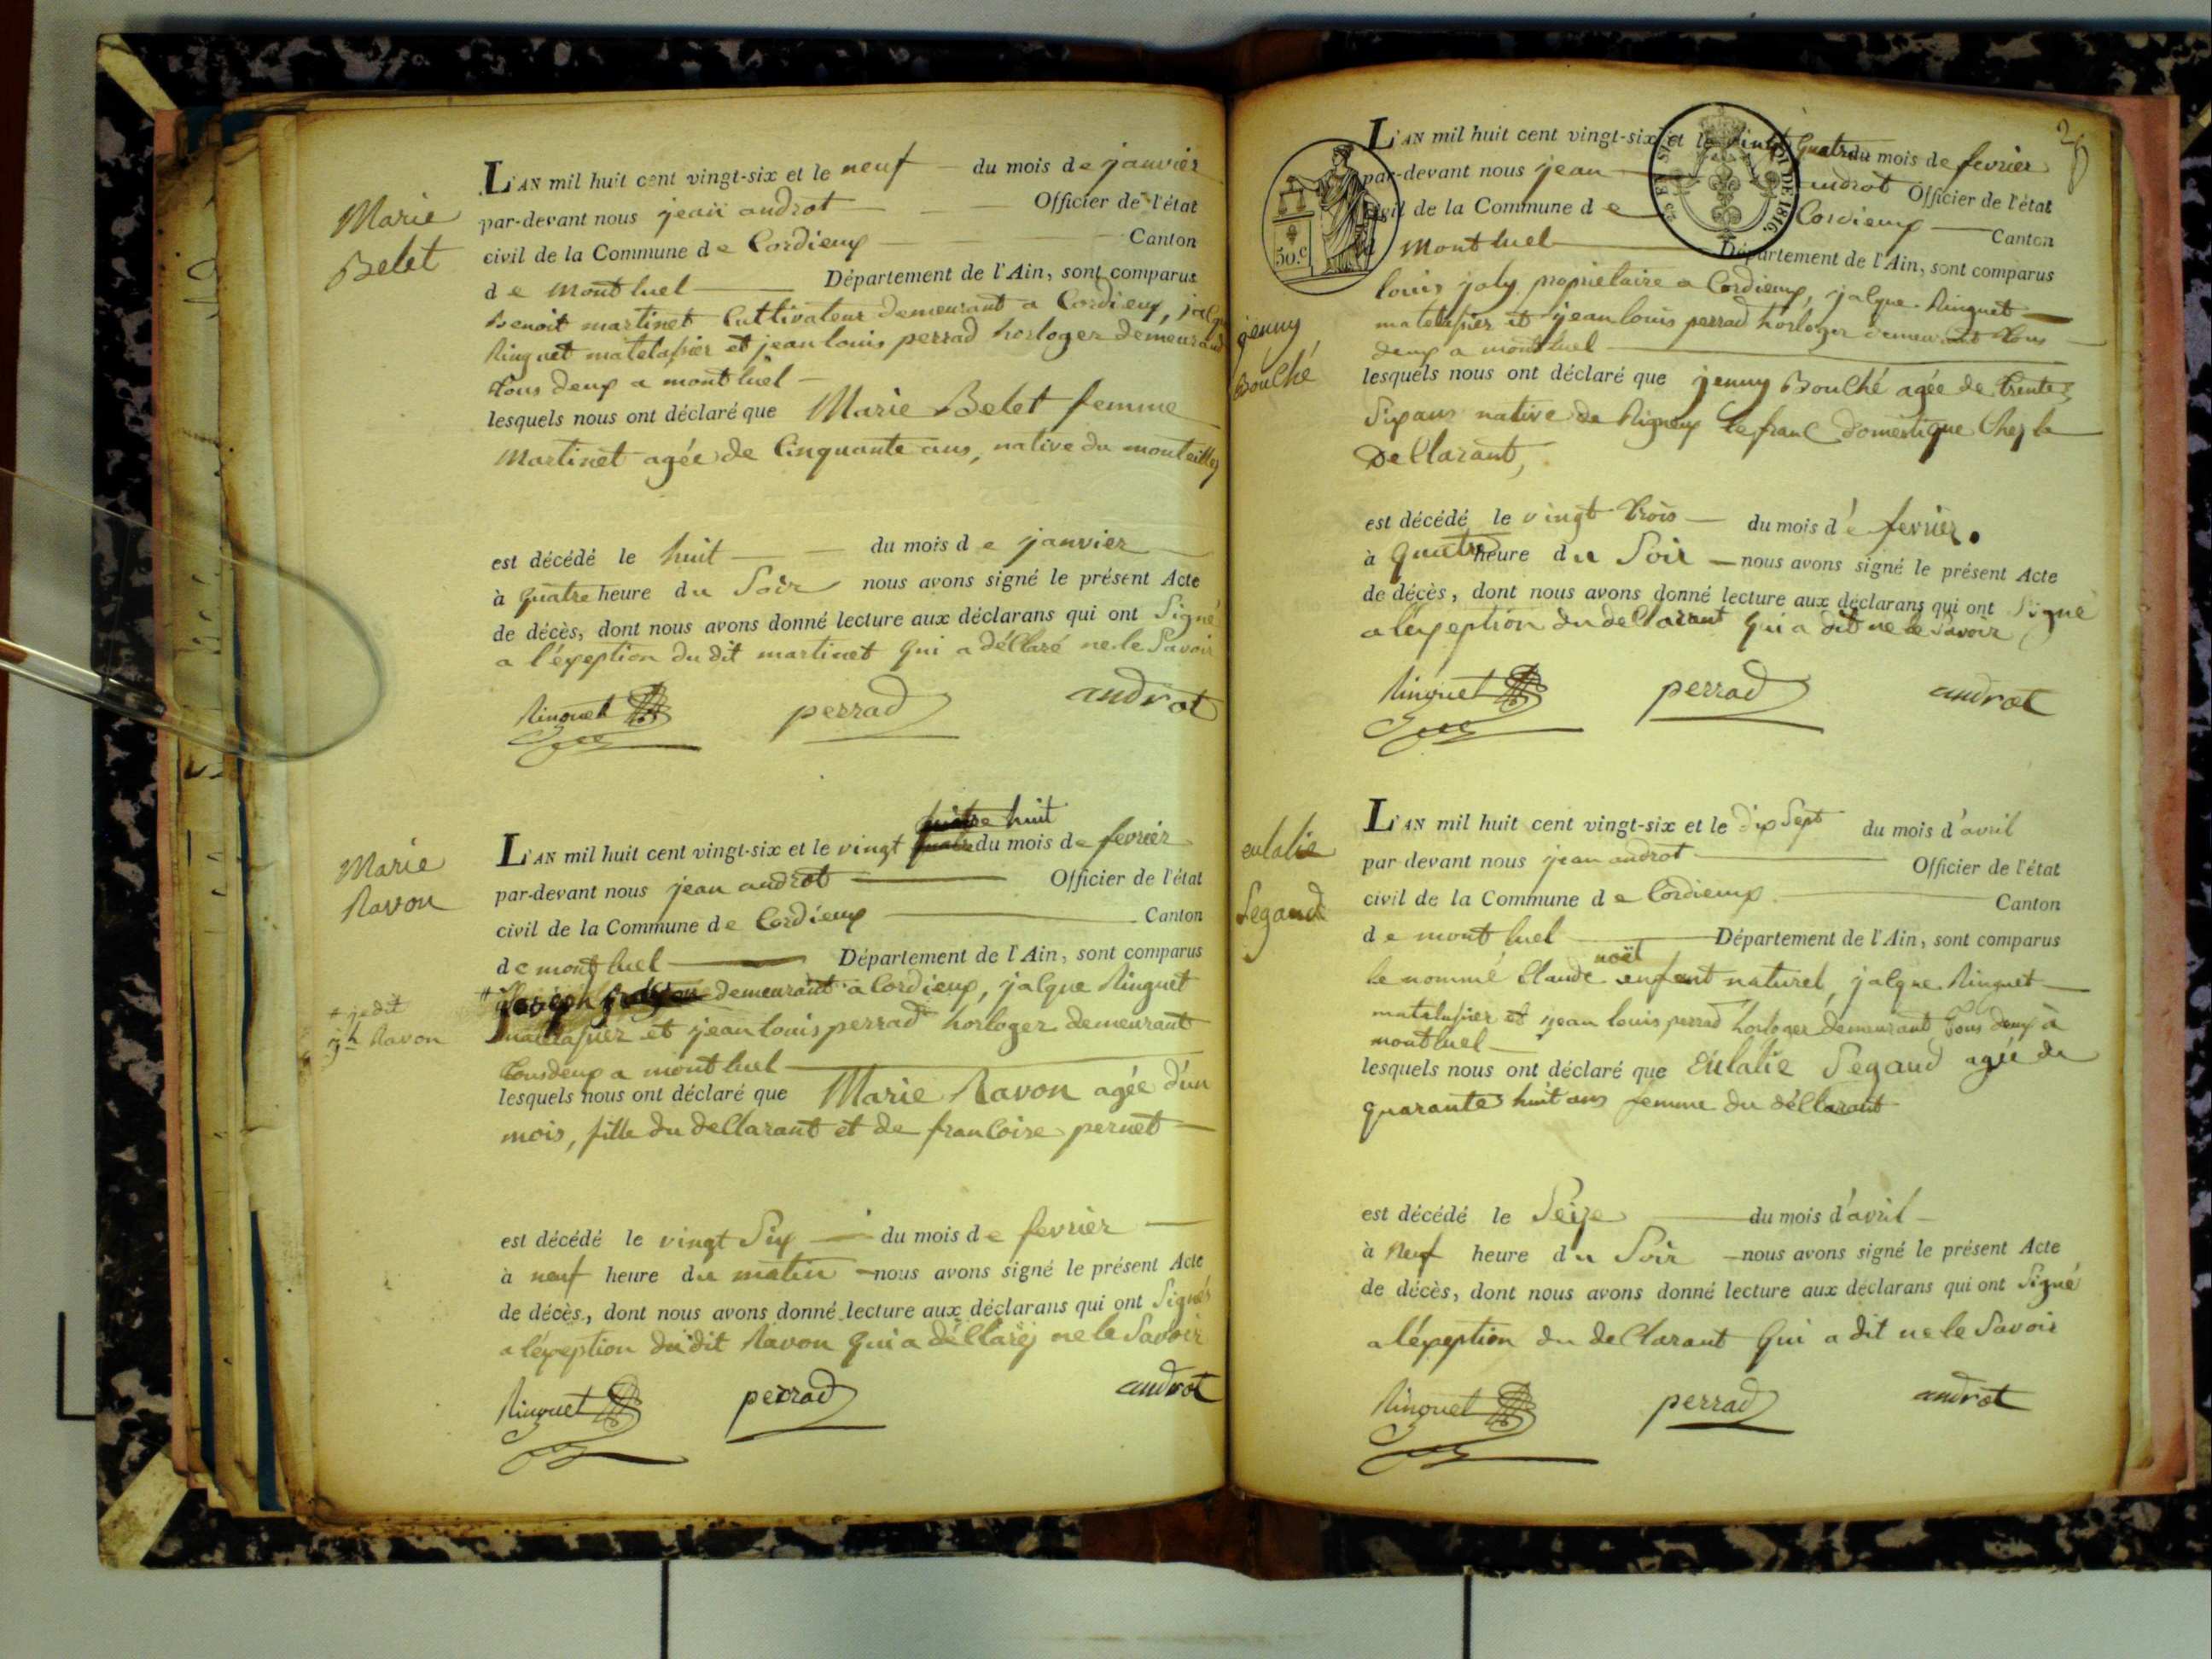 Marie
Belet
L'AN mil huit cent vingt-six et le neuf du mois de janvier
par-devant nous jean androt Officier de l'état
civil de la Commune de Cordieux Canton
de montluel Département de l'Ain, sont comparus
Benoit martinet Cultivateur demeurant a Cordieux, jalque
Ringuet matelassier et jean louis perrad horloger demeurant
tous deux a montluel
lesquels nous ont déclaré que Marie Belet femme
Martinet agée de Cinquante ans, native du
est décédé le huit du mois de janvier
à quatre heure du Soir nous avons signé le présent Acte
de décès, dont nous avons donné lecture aux déclarans qui ont Signé
a l'exeption du dit martinet qui a déllaré ne le Savoir
Ringuet perrad androt
Marie
Ravon
huit
L'AN mil huit cent vingt-six et le vingt du mois de fevrier
par-devant nous jean androt Officier de l'état
civil de la Commune de Cordieux Canton
de montluel Département de l'Ain, sont comparus
demeurant a Cordieux, jalque Ringuet
+ jh dit
jh Ravon
matelassier et jean louis perrad horloger demeurant
tous deux a montluel
lesquels nous ont déclaré que Marie Ravon agée d'un
mois, fille du dellarant et de franloise pernet
est décédé le vingt Six du mois de fevrier
à neuf heure du matin nous avons signé le présent Acte
de décès, dont nous avons donné lecture aux déclarans qui ont Signés
a l'exeption du dit Ravon qui a déllaré ne le Savoir
Ringuet perrad androt
26
L'AN mil huit cent vingt-six et le vingt quatre du mois de fevrier
par-devant nous jean androt Officier de l'état
civil de la Commune de Cordieux Canton
de montluel Département de l'Ain, sont comparus
50.C
DE 1816.
louis joly propriélaire a Cordieux, jalque Ringuet
matelassier et jean louis perrad horloger demeurant tous
deux a montluel
jenny
Boulhé
lesquels nous ont déclaré que jenny Boulhé agée de trente
Six ans native de Rigneux le franc domestique Chez le
Dellarant,
est décédé le vingt trois du mois de fevrier.
à quatre heure du Soir nous avons signé le présent Acte
de décès, dont nous avons donné lecture aux déclarans qui ont Signé
a lexeption du dellarant qui a dit ne le Savoir
Ringuet perrad androt
eulalie
Segaud
L'AN mil huit cent vingt-six et le dix Sept du mois d'avril
par devant nous jean androt Officier de l'état
civil de la Commune de Cordieux Canton
de montluel Département de l'Ain, sont comparus
noël
le nommé Claude enfent naturel, jalque Ringuet
matelassier et jean louis perrad horloger demeurant tous deux à
montluel
lesquels nous ont déclaré que Eulalie Segaud agée de
quarante huit ans femme du déllarant
est décédé le Seize du mois d'avril
à Neuf heure du Soir nous avons signé le présent Acte
de décès, dont nous avons donné lecture aux déclarans qui ont Signé
a l'éxeption du dellarant qui a dit ne le Savoir
Ringuet perrad androt